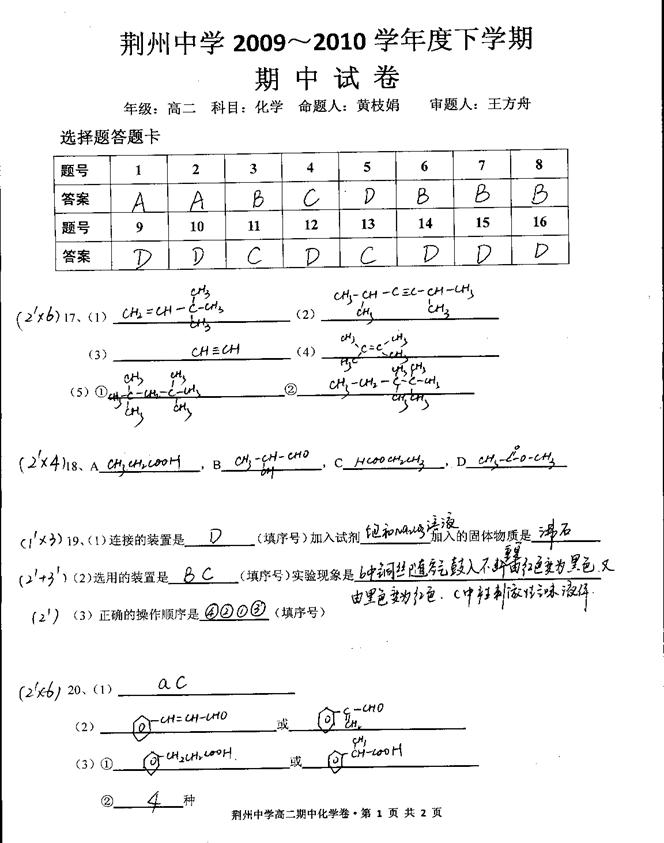 荆州中学 2009～2010 学年度下学期
期 中 试 卷
年级：高二 科目：化学 命题人：黄枝娟 审题人：王方舟
选择题答题卡
题号 1 2 3 4 5 6 7 8
答案 A A B C D B B B
题号 9 10 11 12 13 14 15 16
答案 D D C D C D D D
(2'×6) 17、(1) CH2=CH-C(CH3)(CH3)-CH3 (2) CH3-CH(CH3)-C≡C-CH(CH3)-CH3
(3) CH≡CH (4) CH3 H3C C=C CH3 CH3
(5) ① CH3-C(CH3)(CH3)-CH2-C(CH3)(CH3)-CH3 ② CH3-CH2-C(CH3)(CH3)-C(CH3)(CH3)-CH3
(2'×4) 18、A CH3CH2COOH ，B CH3-CH(OH)-CHO ，C HCOOCH2CH3 ，D CH3-C(=O)-O-CH3
(1'×3) 19、(1) 连接的装置是 D (填序号) 加入试剂 饱和Na2CO3溶液 加入的固体物质是 沸石
(2'+3') (2) 选用的装置是 B C (填序号) 实验现象是 b中铜丝随空气鼓入不断由红色变为黑色，又
由黑色变为红色. C中有刺激性气味液体.
(2') (3) 正确的操作顺序是 ④②①③ (填序号)
(2'×6) 20、(1) a C
(2) -CH=CH-CHO 或 -C(=CH2)-CHO
(3) ① -CH2CH2COOH 或 -CH(CH3)-COOH
② 4 种
荆州中学高二期中化学卷·第 1 页 共 2 页